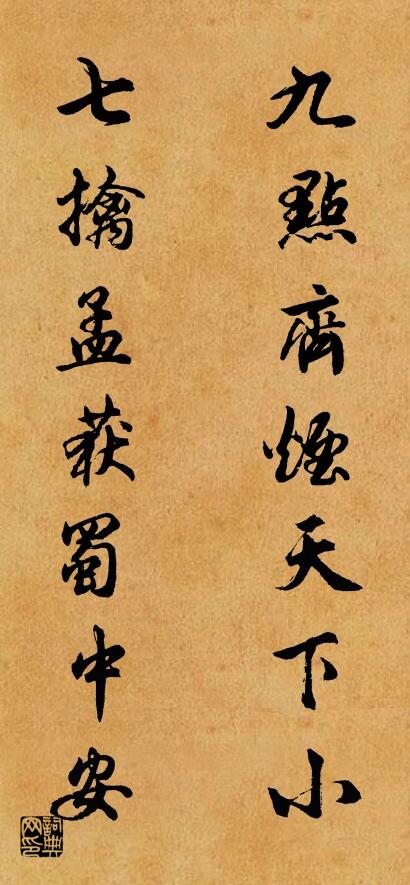 九點齊煙天下小
七擒孟获蜀中安
詞典网印